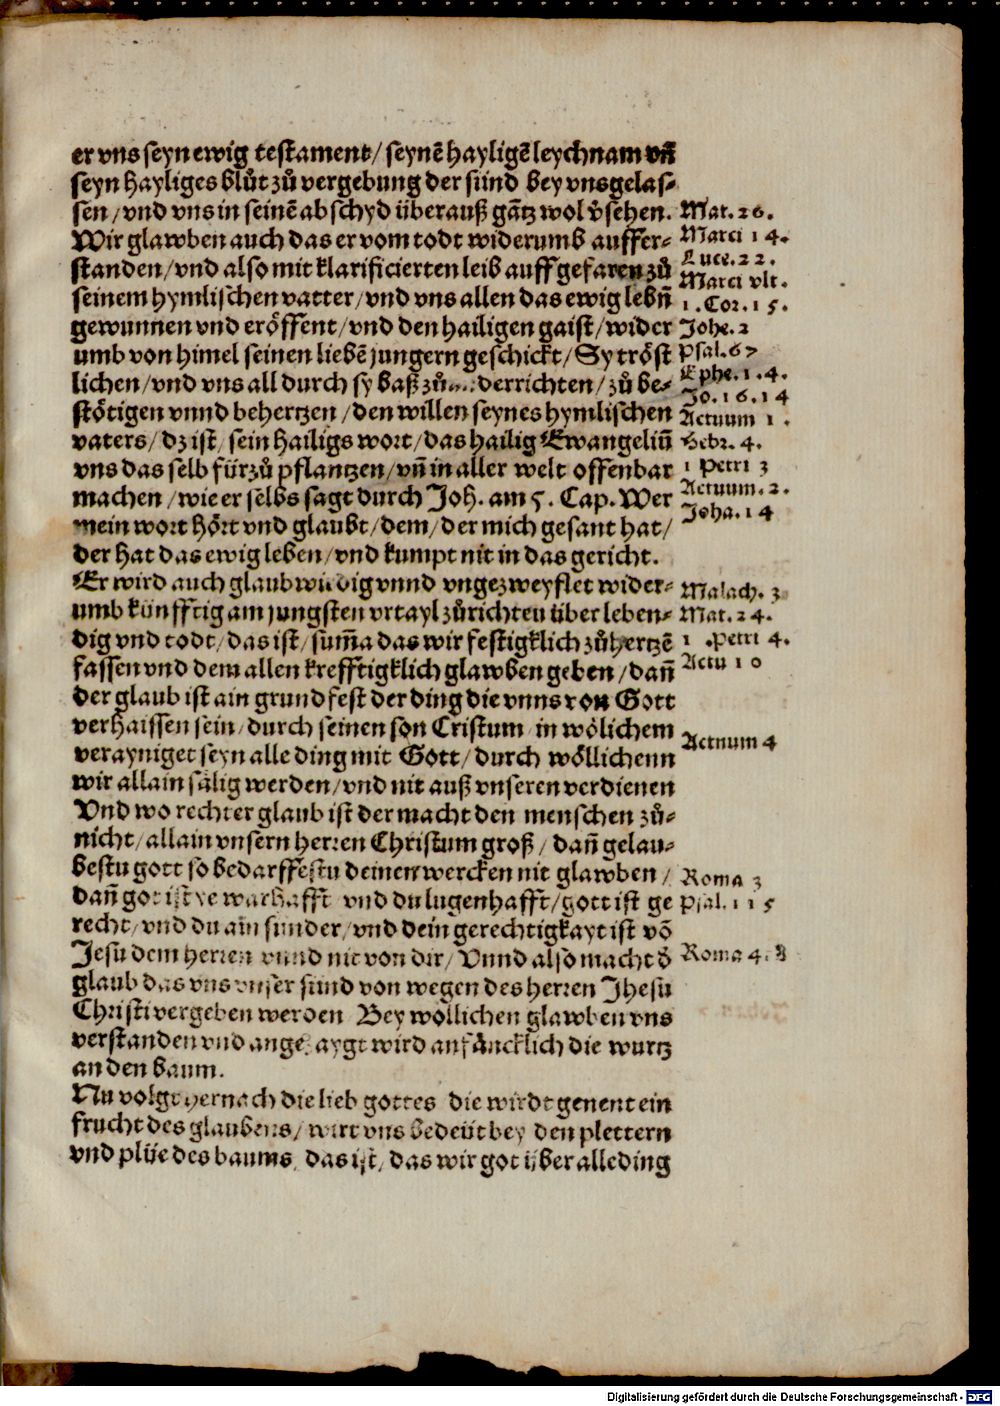 er vns seyn ewig testament/ seynē hayligē leychnam vn̄
seyn hayliges blůt zů vergebung der sünd bey vns gelas-
sen/ vnd vns in seinē abschyd überauß gātz wol v̊sehen.
Wir glawben auch das er vom todt widerumb auffer-
standen/ vnd also mit klarificierten leib auffgefaren zů
seinem hymlischen vatter/ vnd vns allen das ewig lebn̄
gewunnen vnd eröffent/ vnd den hailigen gaist/ wider
umb von himel seinen liebē jungern geschickt/ Sy tröst
lichen/ vnd vns all durch sy baß zů derrichten/ zů be-
stötigen vnnd behertzen/ den willen seynes hymlischen
vaters/ dz ist/ sein hailigs wort/ das hailig Ewangeliū
vns das selb fürzů pflantzen/ vn̄ in aller welt offenbar
machen/ wie er selbs sagt durch Joh. am 5. Cap. Wer
mein wort hört vnd glaubt/ dem/ der mich gesant hat/
der hat das ewig leben/ vnd kumpt nit in das gericht.
Er wird auch glaubwirdig vnnd vngezweyflet wider-
umb künfftig am jungsten vrtayl zů richten über leben-
dig vnd todt/ das ist/ sum̄a das wir festigklich zů hertzē
fassen vnd dem allen krefftigklich glawben geben/ dan̄
der glaub ist ain grundfest der ding die vnns von Gott
verhaissen sein/ durch seinen son Cristum/ in wölichem
verayniget seyn alle ding mit Gott/ durch wöllichenn
wir allain sälig werden/ vnd nit auß vnseren verdienen
Vnd wo rechter glaub ist der macht den menschen zů-
nicht/ allain vnsern herren Christum groß/ dan̄ gelau-
bestu gott so bedarffestu deinen wercken nit glawben/
dan̄ got ist ye warhafft vnd du lugenhafft/ gott ist ge
recht/ vnd du ain sunder/ vnd dein gerechtigkayt ist vō
Jesu dem herren vnnd nit von dir/ Vnnd also macht d̊
glaub das vns vnser sünd von wegen des herren Jhesu
Christi vergeben werden Bey wöllichen glawben vns
verstanden vnd angezaygt wird anfäncklich die wurtz
an den baum.
Nu volgt hernach die lieb gottes die wirdt genent ein
frucht des glaubens/ wirt vns bedeüt bey den plettern
vnd plüe des baums/ das ist/ das wir got über alle ding
Mat. 26.
Marci 14.
Luce. 22.
Marci vlt.
1. Cor. 15.
Johe. 2
Psal. 67
Ephe. 1. 4.
Jo. 16. 14
Actuum 1.
Hebr. 4.
1 Petri 3
Actuum. 2.
Joha. 14
Malach. 3
Mat. 24.
1. Petri 4.
Actu 10
Actuum 4
Roma 3
Psal. 115
Roma 4. 8
Digitalisierung gefördert durch die Deutsche Forschungsgemeinschaft - DFG